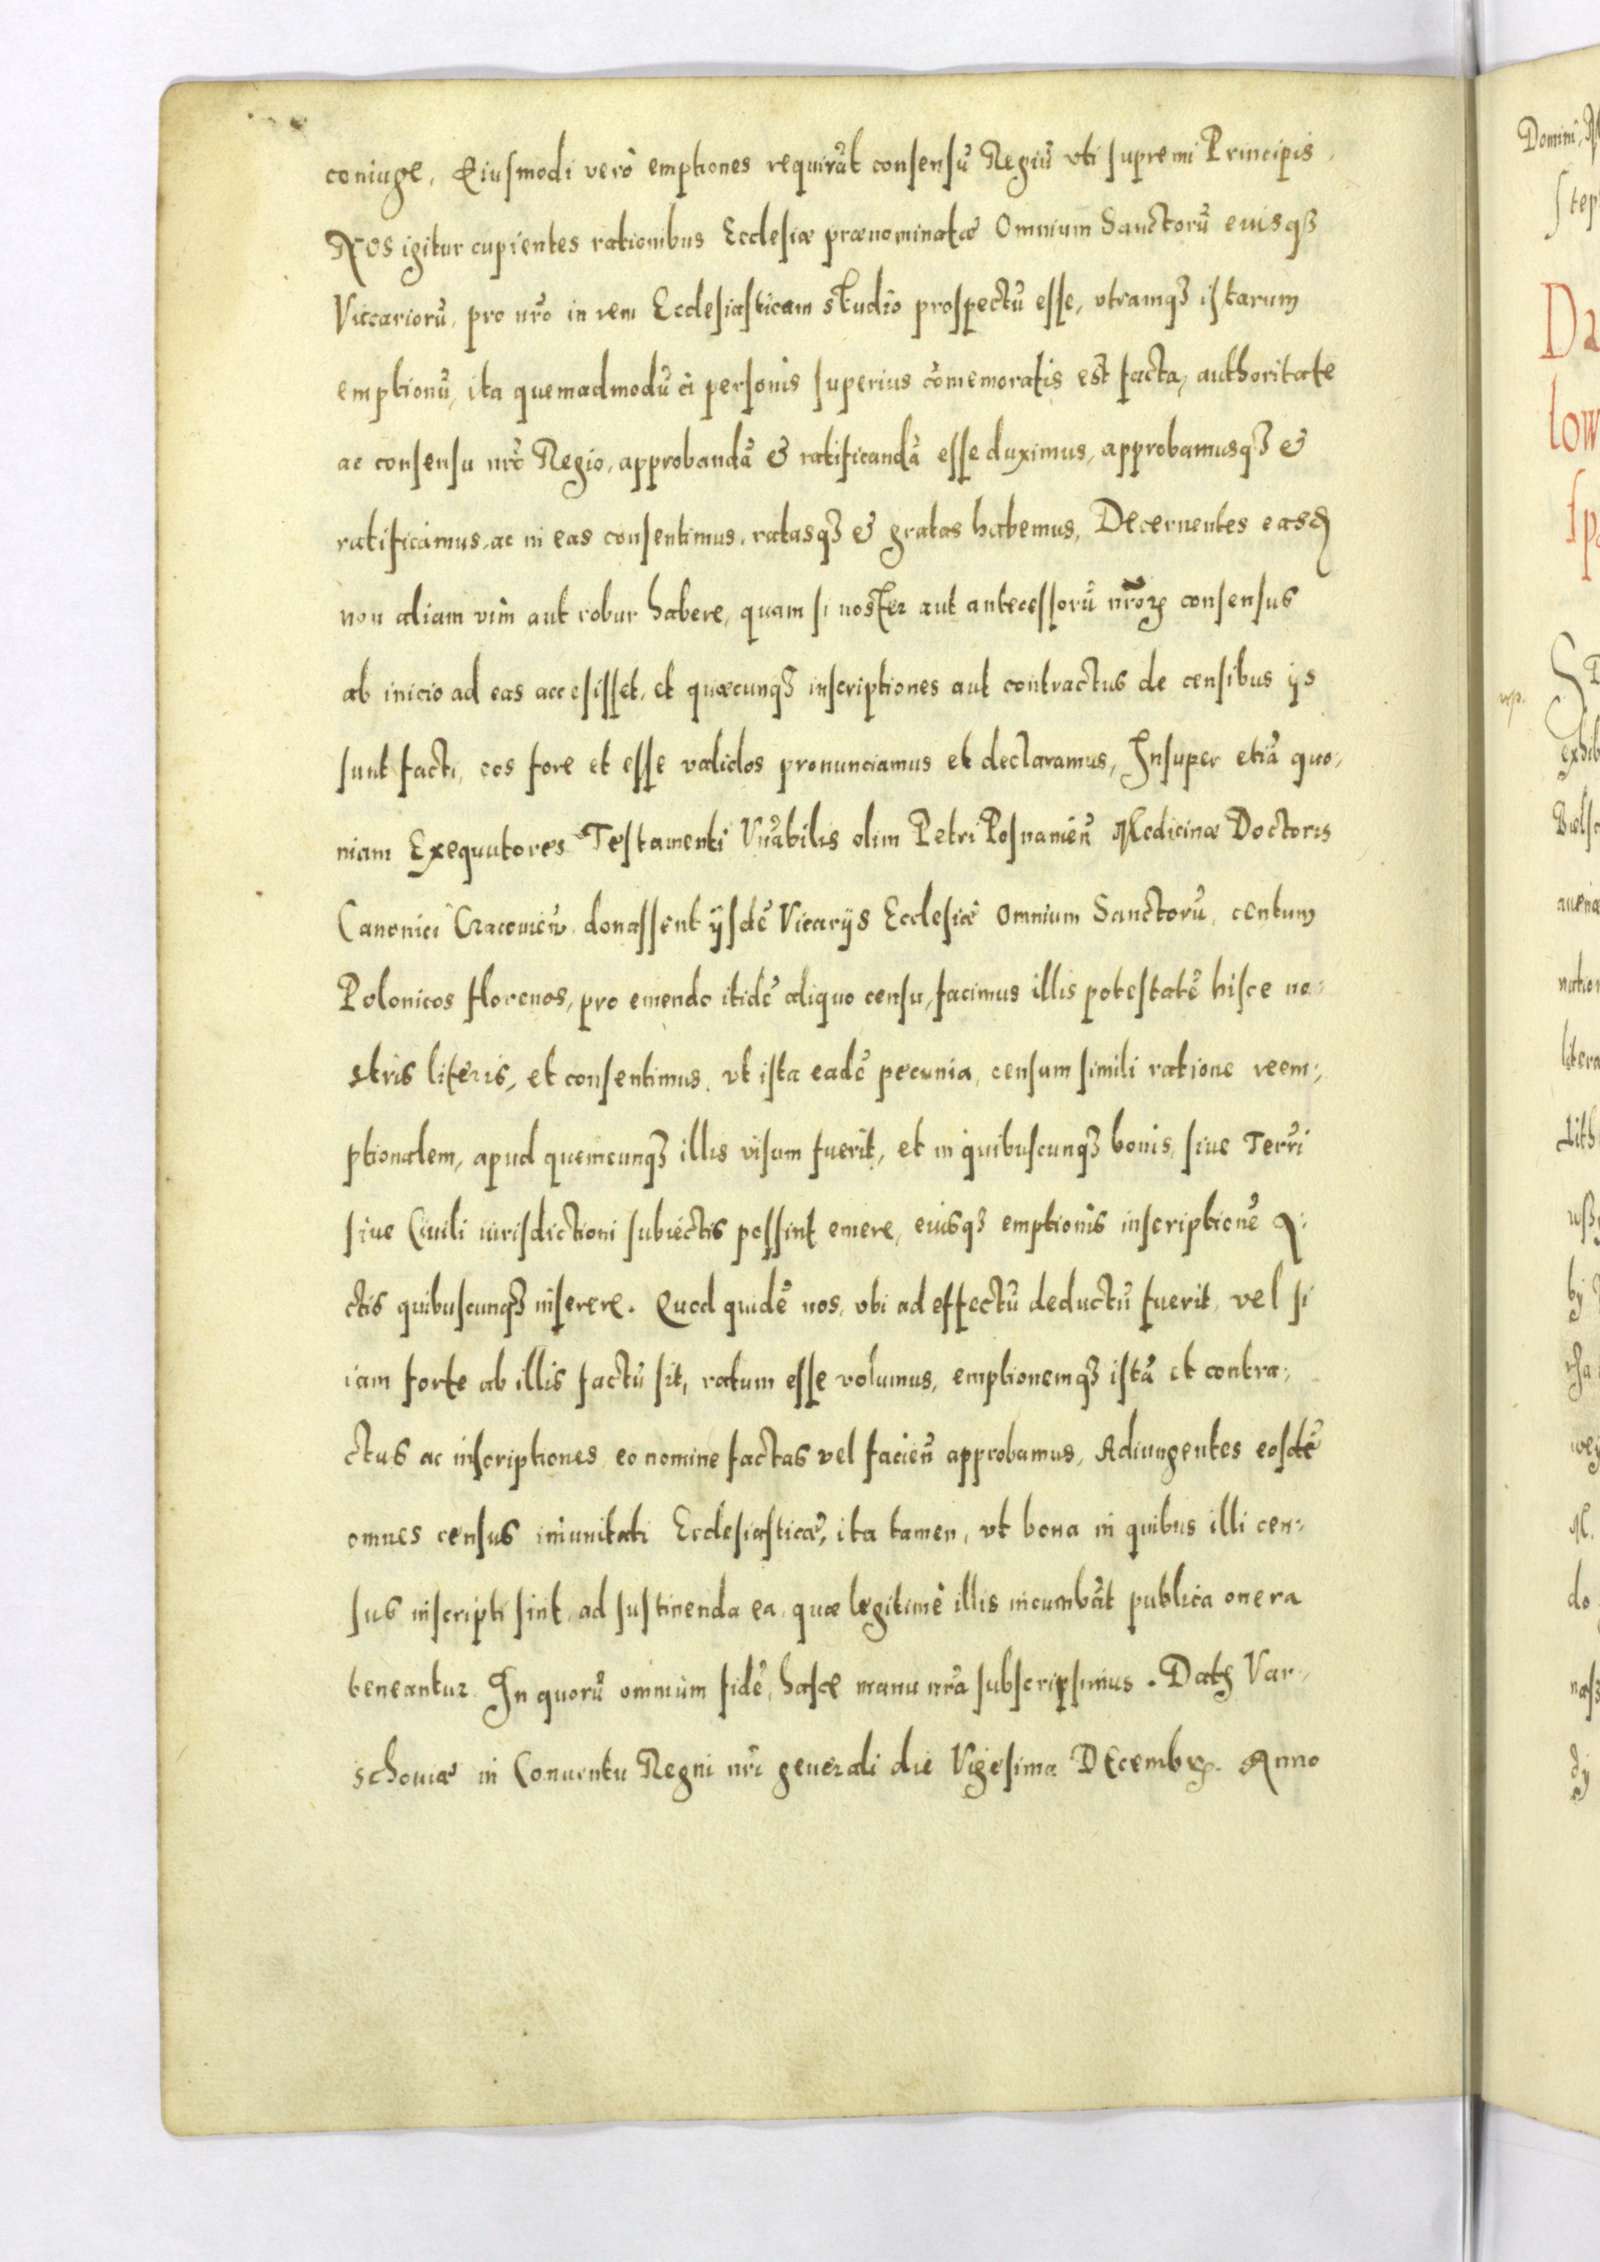 coniuge, Eiusmodi verò emptiones requirũt consensũ Regiũ vti supremi Principis,
Nos igitur cupientes rationibus Ecclesiæ prænominatæ Omnium Sanctorũ euisqȝ
Viccariorũ, pro nr̃o in rem Ecclesiasticam studio prospectũ esse, vtramqȝ istarum
emptionũ, ita quemadmodũ cũ personis superius cõmemoratis est facta, authoritate
ac consensu nr̃o Regio, approbandã & ratificandã esse duximus, approbamusqȝ &
ratificamus, ac in eas consentimus, ratasqȝ & gratas habemus, Decernentes easđ
non aliam vim aut robur habere, quam si noster aut antecessorũ nr̃oꝝ consensus
ab inicio ad eas accesisset, et quæcunqȝ inscriptiones aut contractus de censibus ijs
sunt facti, eos fore et esse validos pronunciamus et declaramus, Insuper etiã quo-
niam Exequutores Testamenti Vn̄abilis olim Petri Posnanień Medicinæ Doctoris
Canonici Cracouień donassent ijsdẽ Vicarijs Ecclesiæ Omnium Sanctorũ, centum
Polonicos florenos, pro emendo itidẽ aliquo censu, facimus illis potestatẽ hisce no-
stris literis, et consentimus, vt ista eadẽ pecunia, censum simili ratione reem-
ptionalem, apud quemcunqȝ illis visum fuerit, et in quibuscunqȝ bonis, siue Terri
siue Ciuili iurisdictioni subiectis possint emere, euisqȝ emptionis inscriptionẽ A-
ctis quibuscunqȝ inserere. Quod quidẽ nos, vbi ad effectũ deductũ fuerit, vel si
iam forte ab illis factũ sit, ratum esse volumus, emptionemqȝ istã et contra-
ctus ac inscriptiones eo nomine factas vel facień approbamus, Adiungentes eosdẽ
omnes census im̃unitati Ecclesiasticæ, ita tamen, vt bona in quibus illi cen-
sus inscripti sint, ad sustinenda ea, quæ legitimè illis incumbũt publica onera
teneantur. In quorũ omnium fidẽ, hasce manu nr̃a subscripsimus. Datȝ Var-
schouiæ in Conuentu Regni nr̃i generali die Vigesima Decembꝝ. Anno